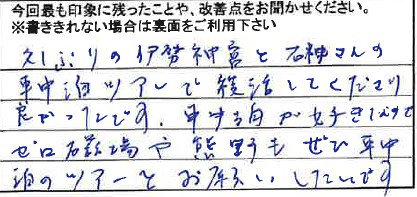 今回最も印象に残ったことや、改善点をお聞かせください。
※書ききれない場合は裏面をご利用下さい
久しぶりの伊勢神宮と石神さんの
車中泊ツアーで復活してくださり
良かったです。車中泊が好きなので
ゼロ磁場や熊野もぜひ車中
泊のツアーとお願いしたいです